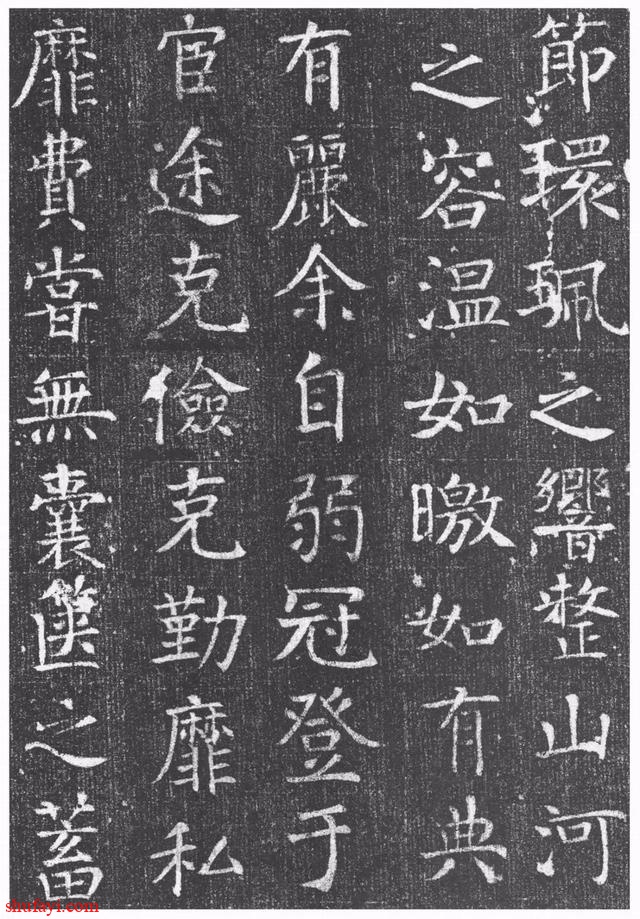 節環珮之響整山河
之容温如曒如有典
有麗余自弱冠登于
宦途克儉克勤靡私
靡費嘗無囊篋之蓄
shufayi.com